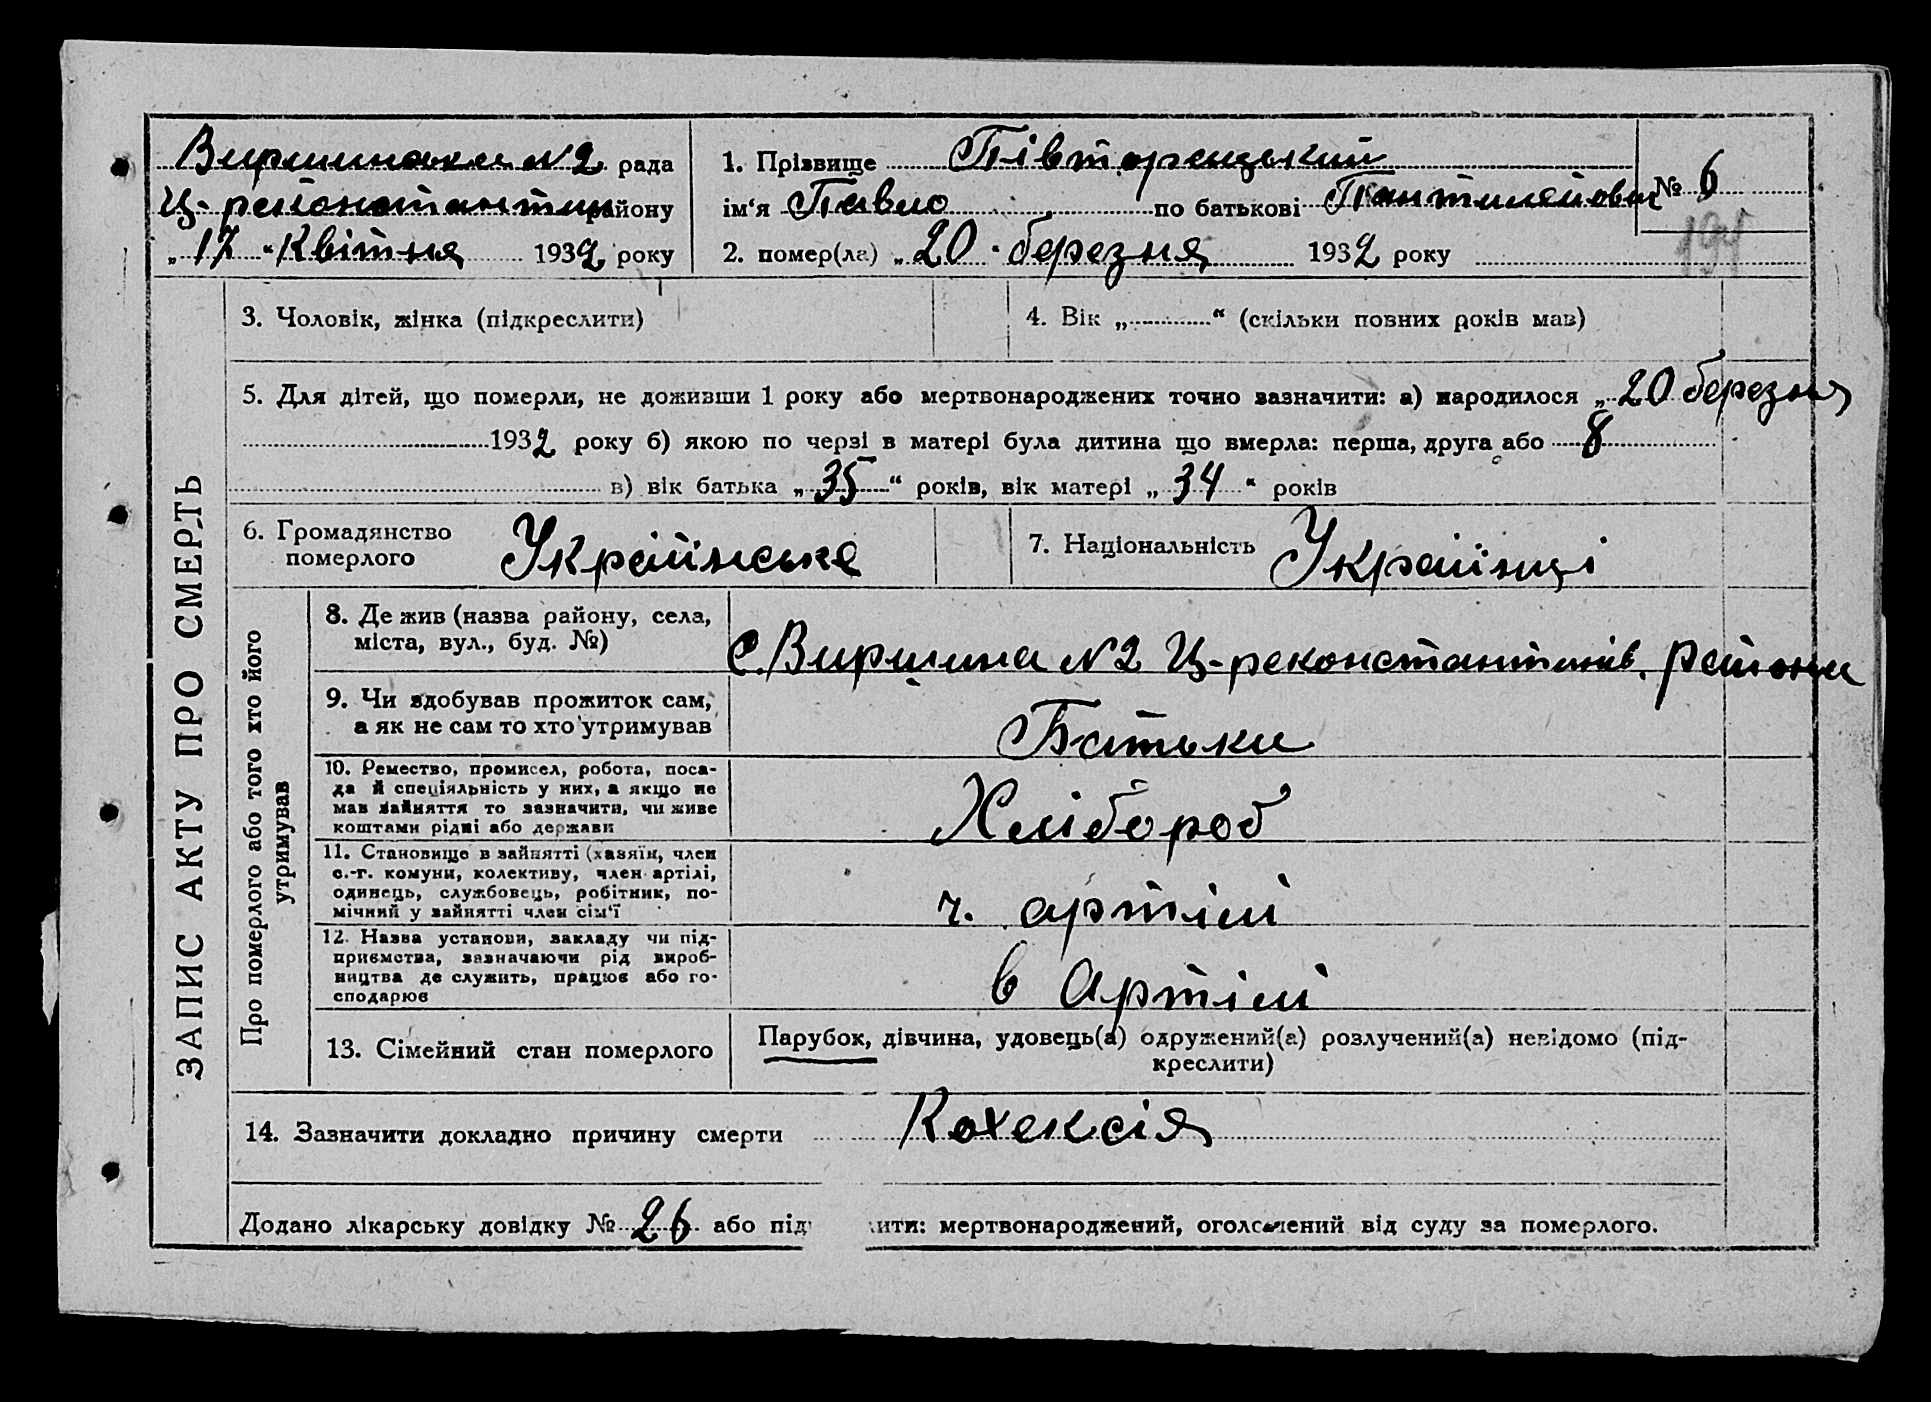 Виршинська N2 рада
Ц- районстантин району
„17“ Квітня 1932 року
1. Прізвище Півторецький
ім‘я Павло по батькові Пантилейович
2. помер(ла) „20. березня 1932 року
№ 6
191
ЗАПИС АКТУ ПРО СМЕРТЬ
3. Чоловік, жінка (підкреслити)
4. Вік „ “ (скільки повних років мав)
5. Для дітей, що померли, не доживши 1 року або мертвонароджених точно зазначити: а) народилося „20 березня
1932 року б) якою по черзі в матері була дитина що вмерла: перша, друга або 8
в) вік батька „35“ років, вік матері „34“ років
6. Громадянство
померлого Українське
7. Національність Українці
Про померлого або того хто його
утримував
8. Де жив (назва району, села,
міста, вул., буд. №)
с. Виршина N2 Ц-реконстантинів. району
9. Чи здобував прожиток сам,
а як не сам то хто утримував
Батьки
10. Ремество, промисел, робота, поса-
да й спеціяльність у них, а якщо не
мав зайняття то зазначити, чи живе
коштами рідні або держави
Хлібороб
11. Становище в зайнятті (хазяїн, член
с.-г. комуни, колективу, член артілі,
одинець, службовець, робітник, по-
мічний у зайнятті член сім‘ї
ч. артілі
12. Назва установи, закладу чи під-
приємства, зазначаючи рід вироб-
ництва де служить, працює або го-
сподарює
в Артілі
13. Сімейний стан померлого
Парубок, дівчина, удовець(а) одружений(а) розлучений(а) невідомо (під-
креслити)
14. Зазначити докладно причину смерти Кохексія
Додано лікарську довідку № 26 або під лити: мертвонароджений, оголошений від суду за померлого.